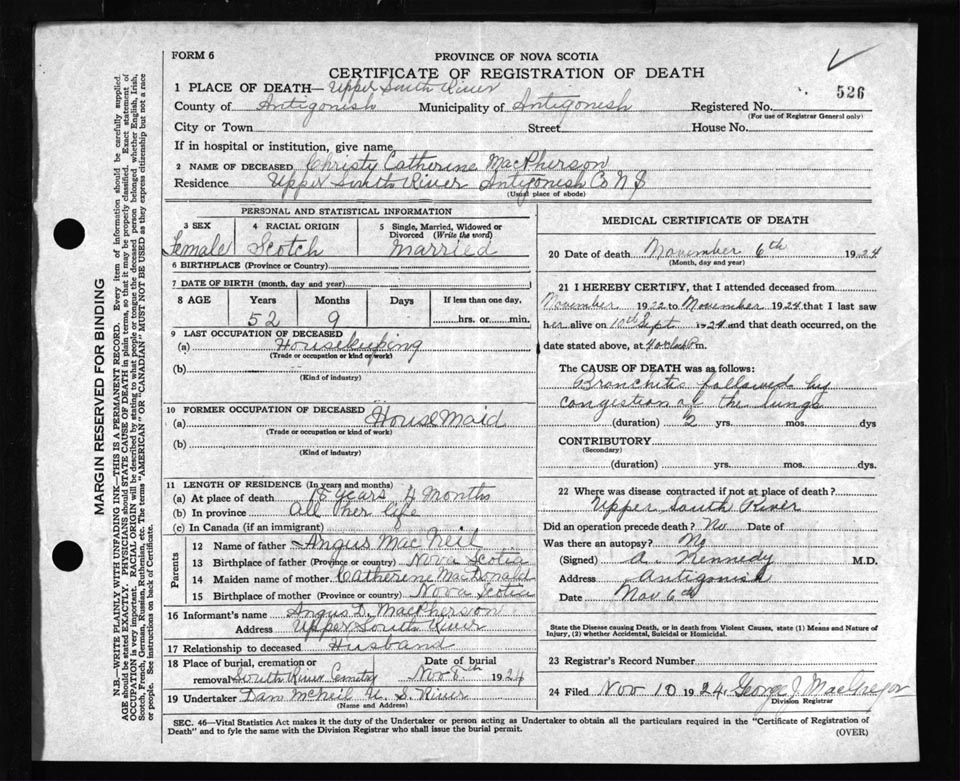 FORM 6
PROVINCE OF NOVA SCOTIA
CERTIFICATE OF REGISTRATION OF DEATH
1 PLACE OF DEATH— Upper South River
County of Antigonish Municipality of Antigonish Registered No. 526
(For use of Registrar General only)
City or Town Street House No.
If in hospital or institution, give name
2 NAME OF DECEASED Christy Catherine MacPherson
Residence Upper South River Antigonish Co N S
(Usual place of abode)
PERSONAL AND STATISTICAL INFORMATION
3 SEX 4 RACIAL ORIGIN 5 Single, Married, Widowed or Divorced (Write the word)
Female Scotch Married
6 BIRTHPLACE (Province or Country)
7 DATE OF BIRTH (month, day and year)
8 AGE Years Months Days If less than one day,
52 9 hrs. or min.
9 LAST OCCUPATION OF DECEASED
(a) Housekeeping
(Trade or occupation or kind of work)
(b)
(Kind of industry)
10 FORMER OCCUPATION OF DECEASED
(a) House Maid
(Trade or occupation or kind of work)
(b)
(Kind of industry)
11 LENGTH OF RESIDENCE (In years and months)
(a) At place of death years 4 Months
(b) In province All her life
(c) In Canada (if an immigrant)
Parents
12 Name of father Angus Mac Neil
13 Birthplace of father (Province or country) Nova Scotia
14 Maiden name of mother Catherene MacDonald
15 Birthplace of mother (Province or country) Nova Scotia
16 Informant's name Angus D. MacPherson
Address Upper South River
17 Relationship to deceased Husband
18 Place of burial, cremation or Date of burial
removal South River Cemetry Nov 8th 1924
19 Undertaker Dan McNeil U. S. River
(Name and Address)
MEDICAL CERTIFICATE OF DEATH
20 Date of death November 6th 1924
(Month, day and year)
21 I HEREBY CERTIFY, that I attended deceased from
November 1922 to November 1924 that I last saw
her alive on 10th Sept 1924 and that death occurred, on
date stated above, at 4 oclock P m.
The CAUSE OF DEATH was as follows:
Bronchitis followed by
congestion of the lungs
(duration) 2 yrs. mos. dys
CONTRIBUTORY
(Secondary)
(duration) yrs. mos. dys.
22 Where was disease contracted if not at place of death?
Upper South River
Did an operation precede death? No Date of
Was there an autopsy? No
(Signed) A. Kennedy M.D.
Address Antigonish
Date Nov 6th
State the Disease causing Death, or in death from Violent Causes, state (1) Means and Nature of
Injury, (2) whether Accidental, Suicidal or Homicidal.
23 Registrar's Record Number
24 Filed Nov 10 1924 George J. MacGregor
Division Registrar
SEC. 46—Vital Statistics Act makes it the duty of the Undertaker or person acting as Undertaker to obtain all the particulars required in the "Certificate of Registration of
Death" and to fyle the same with the Division Registrar who shall issue the burial permit.
(OVER)
MARGIN RESERVED FOR BINDING
N.B.—WRITE PLAINLY WITH UNFADING INK—THIS IS A PERMANENT RECORD. Every item of information should be carefully supplied.
AGE should be stated EXACTLY. PHYSICIANS should STATE CAUSE OF DEATH in plain terms, so that it may be properly classified. Exact statement of
OCCUPATION is very important. RACIAL ORIGIN will be described by stating to what people or tongue the deceased person belonged whether English, Irish,
Scotch, French, German, Russian, Ruthenian, etc. The terms "AMERICAN" OR "CANADIAN" MUST NOT BE USED as they express citizenship but not a race
or people. See instructions on back of Certificate.